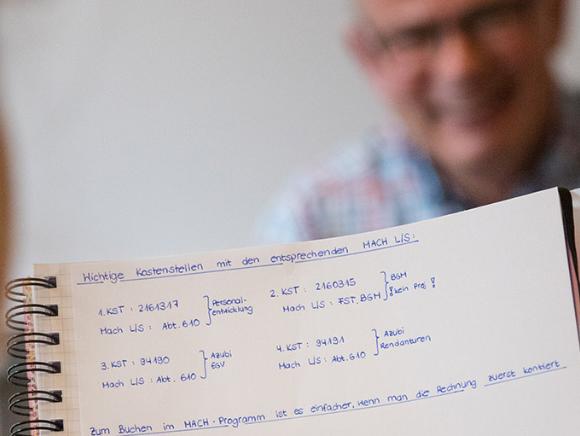 Wichtige Kostenstellen mit den entsprechenden MACH L/S:
1. KST : 2161317 } Personal-
entwicklung
Mach L/S : Abt. 610
2. KST : 2160315 } BGM
! kein Proj !
Mach L/S : FST. BGM
3. KST : 94190 } Azubi
EGV
Mach L/S : Abt. 610
4. KST : 94191 } Azubi
Rendanturen
Mach L/S : Abt. 610
Zum Buchen im MACH - Programm ist es einfacher, wenn man die Rechnung zuerst kontiert